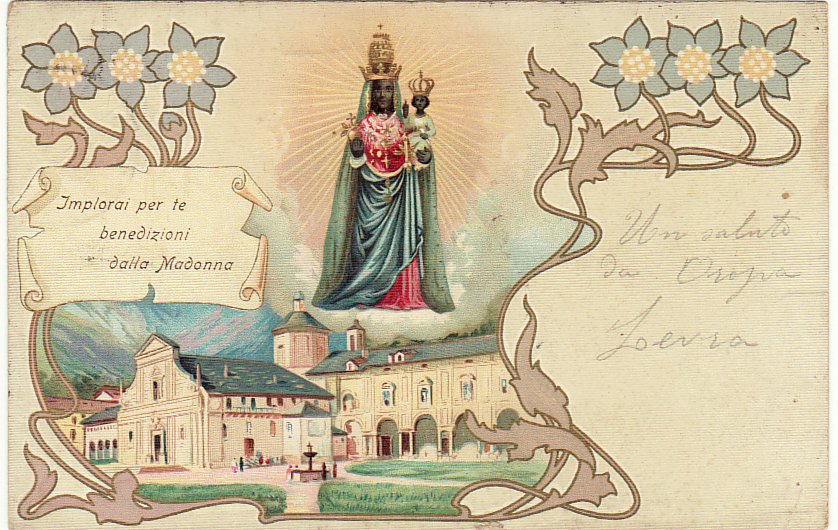 Implorai per te
benedizioni
dalla Madonna
Un saluto
da Oropa